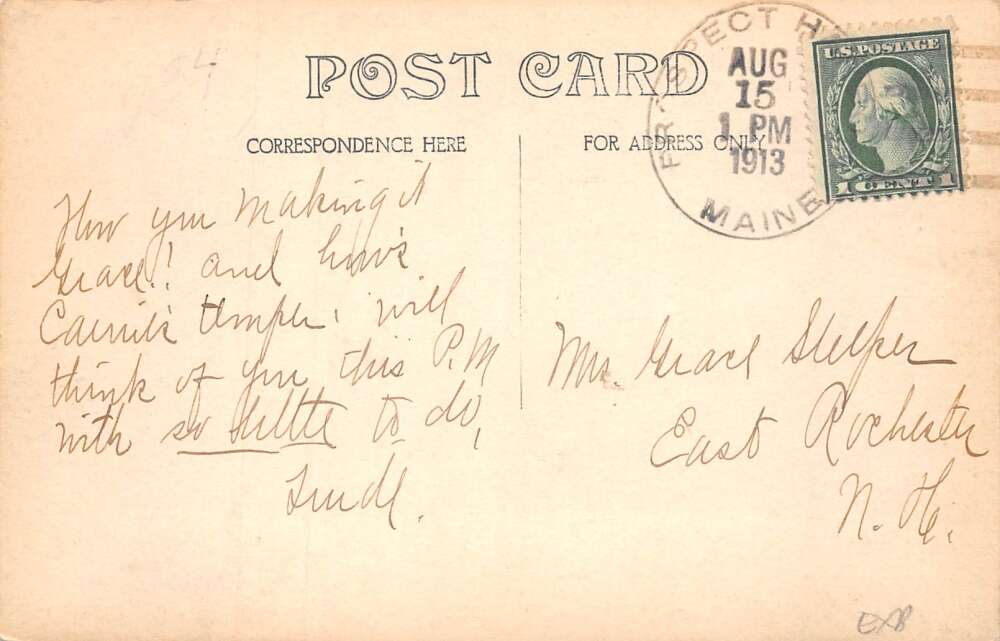 POST CARD
CORRESPONDENCE HERE
FOR ADDRESS ONLY
PROSPECT H
AUG
15
1 PM
1913
MAINE
U.S. POSTAGE
1 CENT 1
How you making it
Grace? and how's
Carrie's temper. will
think of you this P.M
with so little to do,
Mrs. Grace Shelper
East Rochester
N. H.